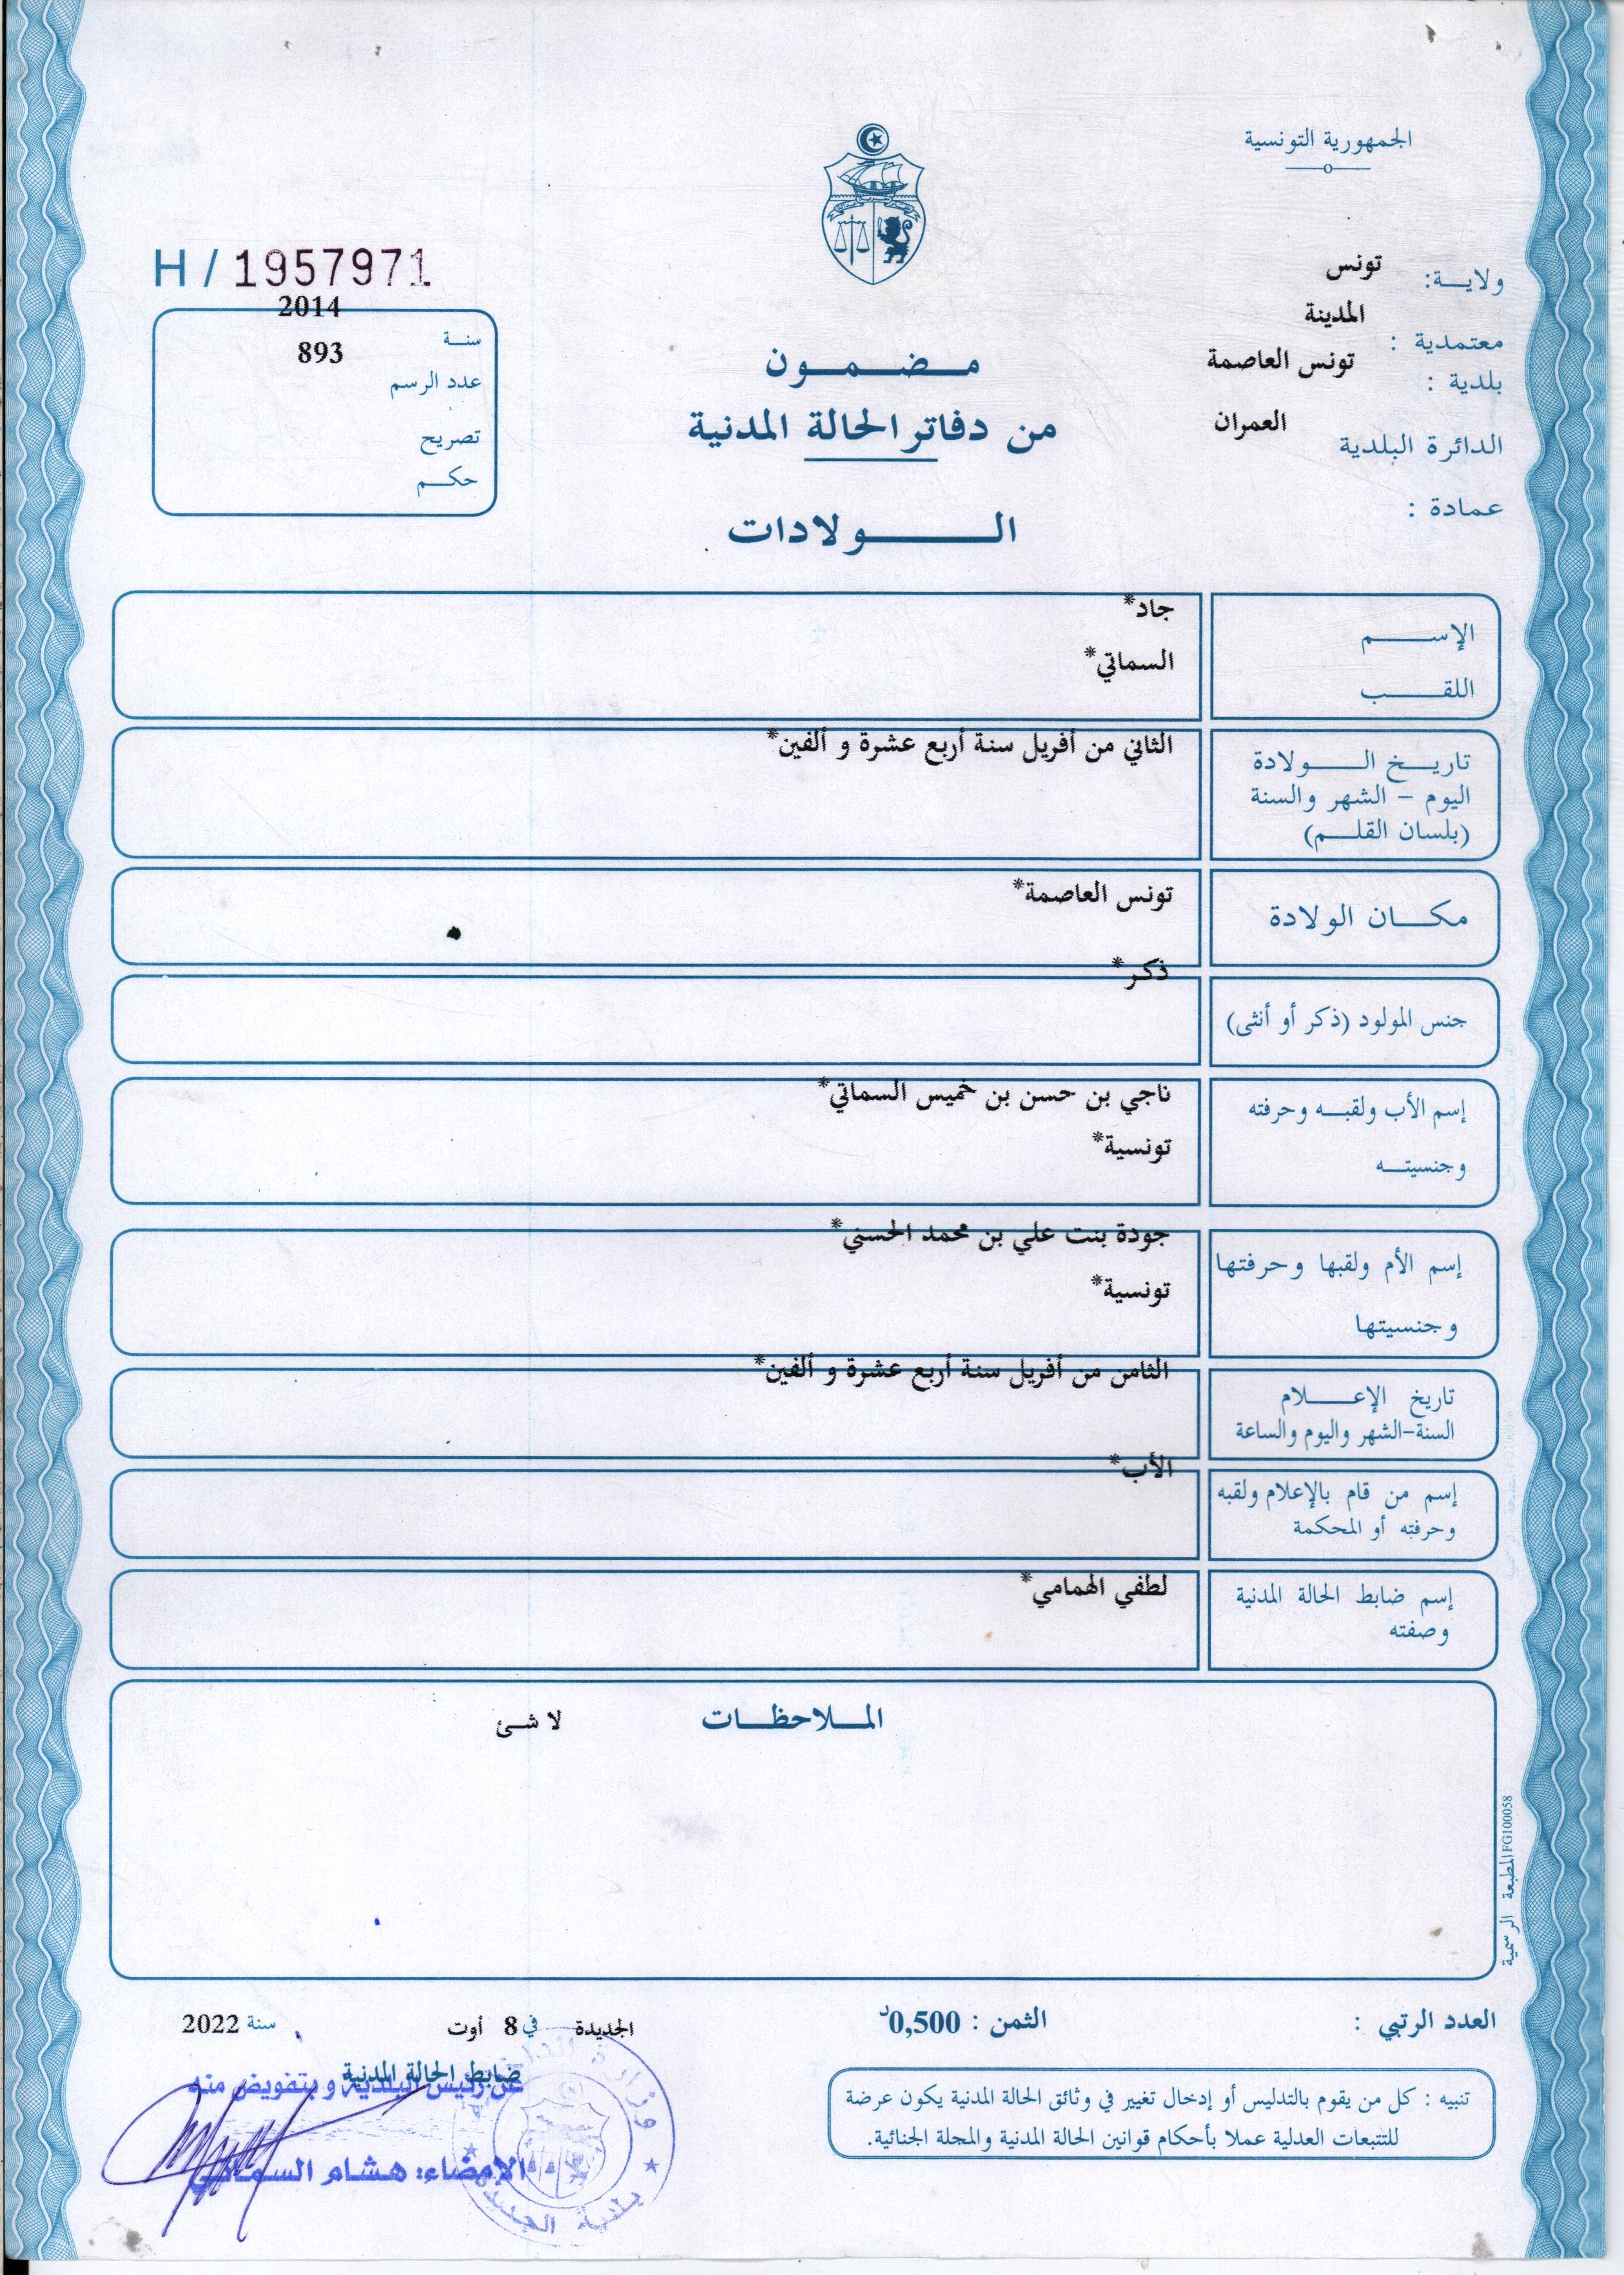 الجمهورية التونسية
ولاية: تونس
معتمدية : المدينة
بلدية : تونس العاصمة
الدائرة البلدية العمران
عمادة :
H / 1957971
سنة 2014
عدد الرسم 893
تصريح
حكم
مضمون
من دفاتر الحالة المدنية
الولادات
الإسم جاد*
اللقب السماتي*
تاريخ الولادة الثاني من أفريل سنة أربع عشرة و ألفين*
اليوم – الشهر والسنة
(بلسان القلم)
مكان الولادة تونس العاصمة*
جنس المولود (ذكر أو أنثى) ذكر*
إسم الأب ولقبه وحرفته ناجي بن حسن بن خميس السماتي*
وجنسيته تونسية*
إسم الأم ولقبها وحرفتها جودة بنت علي بن محمد الحسني*
وجنسيتها تونسية*
تاريخ الإعلام الثامن من أفريل سنة أربع عشرة و ألفين*
السنة-الشهر واليوم والساعة
إسم من قام بالإعلام ولقبه الأب*
وحرفته أو المحكمة
إسم ضابط الحالة المدنية لطفي الهمامي*
وصفته
الملاحظات لا شئ
المطبعة الرسمية FG100058
العدد الرتبي :
الثمن : 0,500د
الجديدة في 8 أوت سنة 2022
ضابط الحالة المدنية
عن رئيس البلدية و بتفويض منه
الإمضاء: هشام السماتي
بلدية الجديدة
تنبيه : كل من يقوم بالتدليس أو إدخال تغيير في وثائق الحالة المدنية يكون عرضة
للتتبعات العدلية عملا بأحكام قوانين الحالة المدنية والمجلة الجنائية.